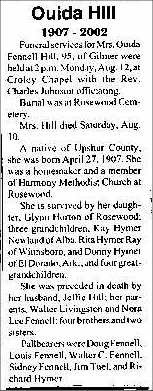 Ouida Hill
1907 - 2002
Funeral services for Mrs. Ouida
Fennell Hill, 95, of Gilmer were
held at 2 p.m. Monday, Aug. 12, at
Croley Chapel with the Rev.
Charles Johnson officiating.
Burial was at Rosewood Cem-
etery.
Mrs. Hill died Saturday, Aug.
10.
A native of Upshur County,
she was born April 27, 1907. She
was a homemaker and a member
of Harmony Methodist Church at
Rosewood.
She is survived by her daugh-
ter, Glynn Horton of Rosewood;
three grandchildren, Kay Hymer
Newland of Alba, Rita Hymer Ray
of Winnsboro, and Donny Hymer
of El Dorado, Ark.; and four great-
grandchildren.
She was preceded in death by
her husband, Jeffie Hill; her par-
ents, Walter Livingston and Nora
Lee Fennell; four brothers and two
sisters.
Pallbearers were Doug Fennell,
Louis Fennell, Walter C. Fennell,
Sidney Fennell, Jim Toel, and Ri-
chard Hymer